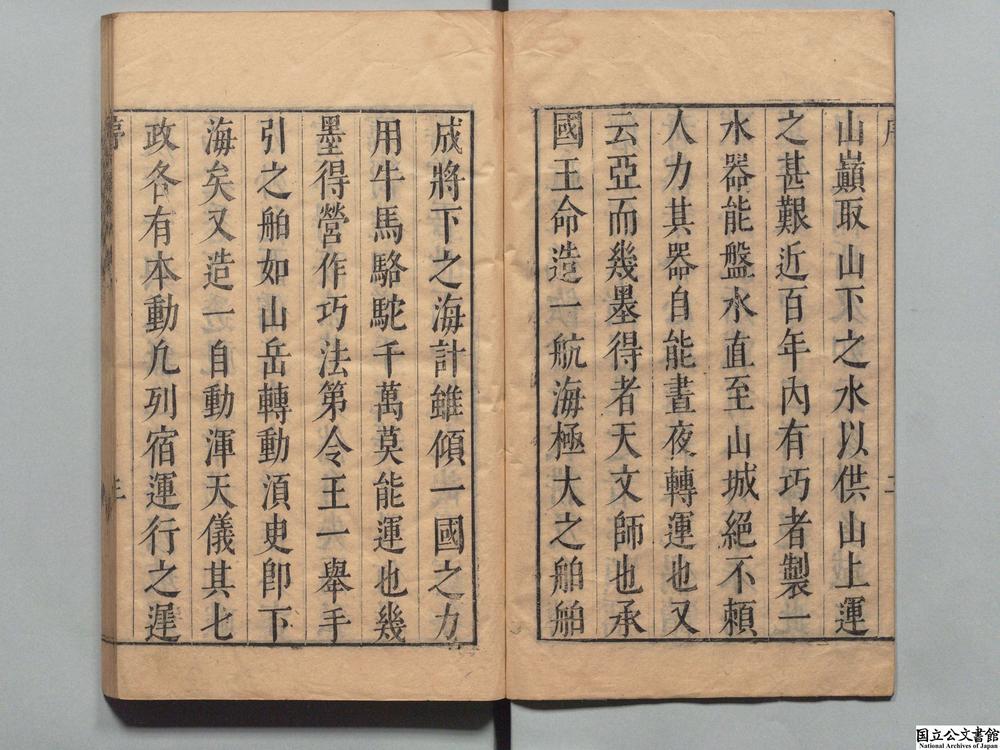 山巔取山下之水以供山上運
之甚艱近百年內有巧者製一
水器能盤水直至山城絕不賴
人力其器自能晝夜轉運也又
云亞而幾墨得者天文師也承
國王命造一航海極大之舶舶
成將下之海計雖傾一國之力
用牛馬駱駝千萬莫能運也幾
墨得營作巧法第令王一舉手
引之舶如山岳轉動湏史卽下
海矣又造一自動渾天儀其七
政各有本動凢列宿運行之遲
序
三
国立公文書館
National Archives of Japan